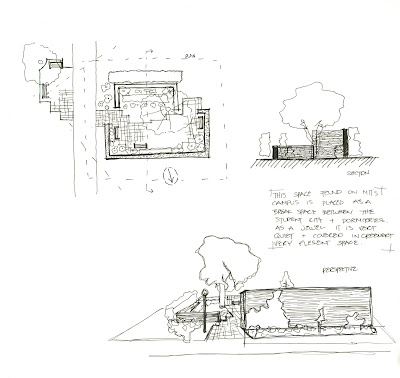 SECTION
THIS SPACE FOUND ON MIT'S
CAMPUS IS PLACED AS A
BREAK SPACE BETWEEN THE
STUDENT CITY + DORMITORIES
AS A JEWEL. IT IS VERY
QUIET + COVERED IN GREENERY
VERY PLESENT SPACE.
PERSPECTIVE